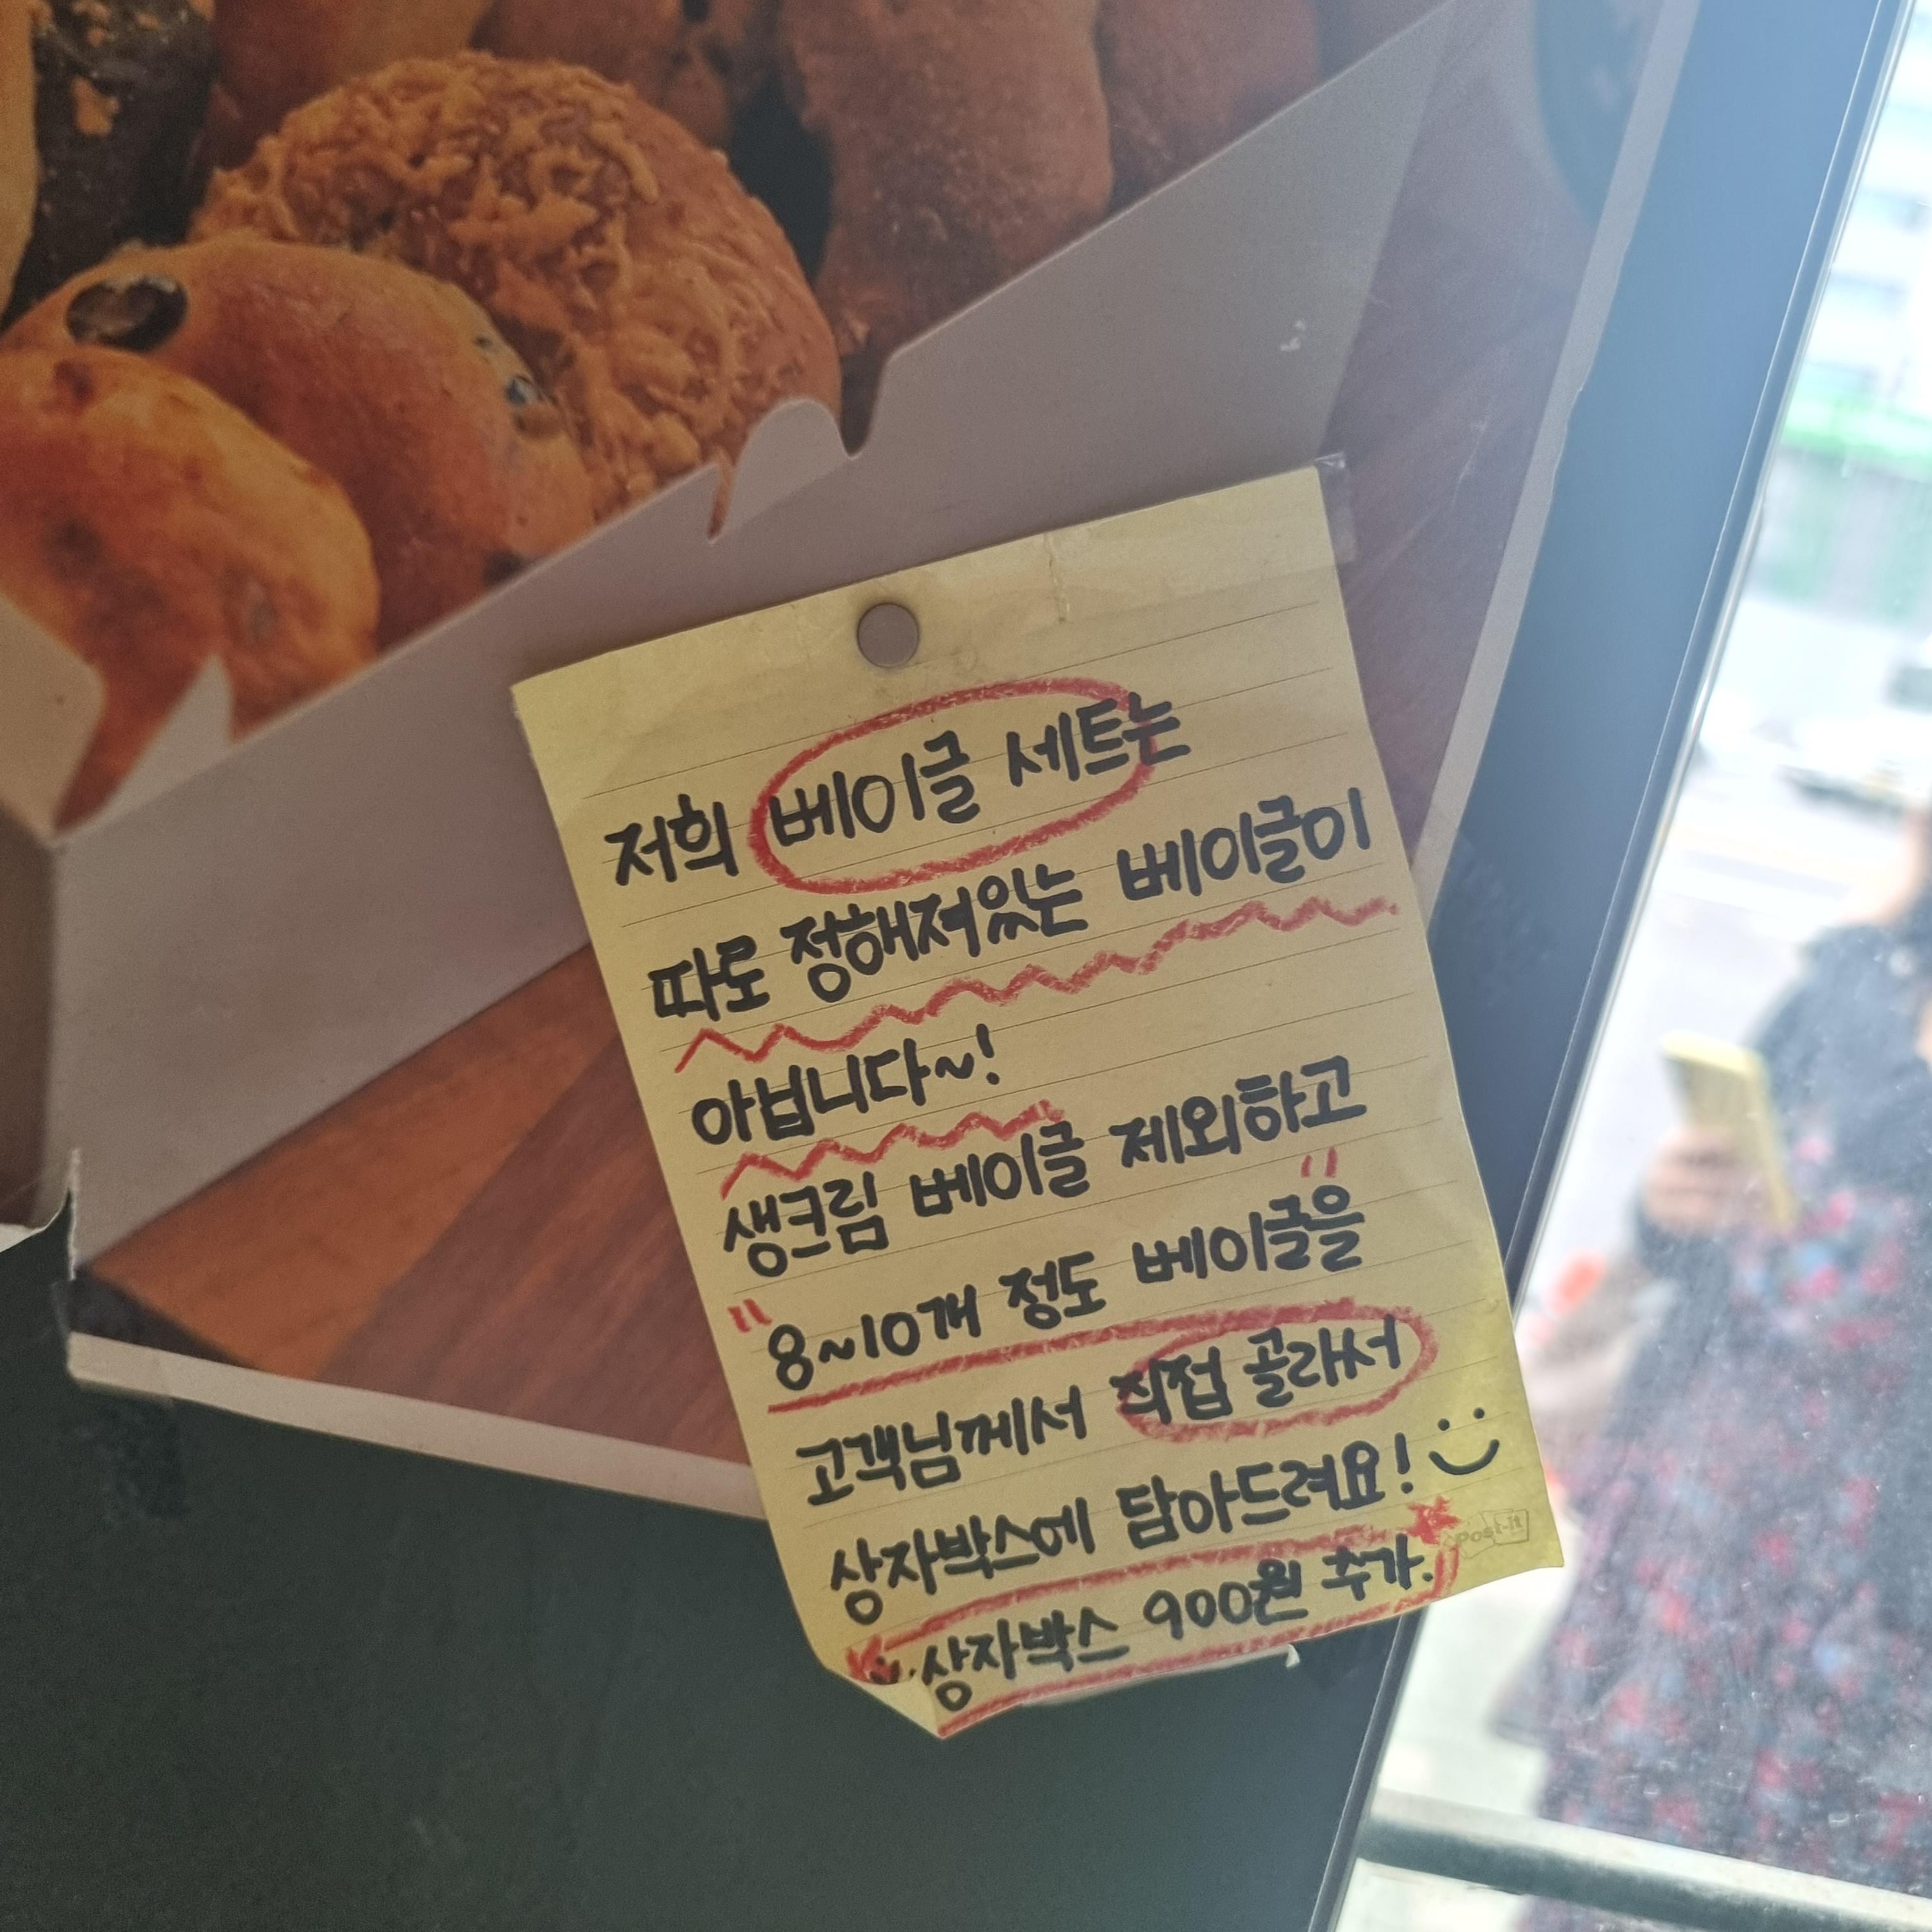 저희 베이글 세트는
따로 정해져있는 베이글이
아닙니다~!
생크림 베이글 제외하고
"8~10개 정도 베이글을"
고객님께서 직접 골라서
상자박스에 담아드려요!
상자박스 900원 추가.
Post-it